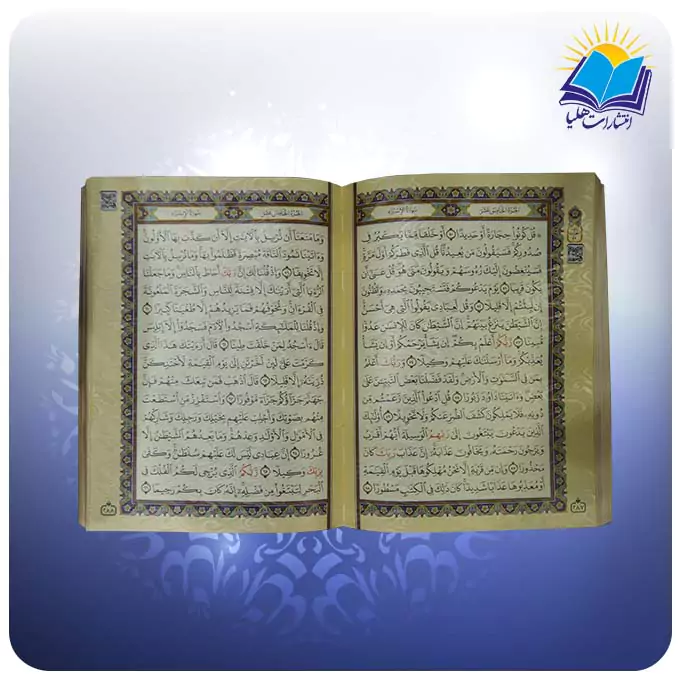 انتشارات هلیا
الجزء الخامس عشر سورة الإسراء
قُلْ كُونُوا۟ حِجَارَةً أَوْ حَدِيدًا ۝٥٠ أَوْ خَلْقًا مِّمَّا يَكْبُرُ فِى
صُدُورِكُمْ فَسَيَقُولُونَ مَن يُعِيدُنَا قُلِ ٱلَّذِى فَطَرَكُمْ أَوَّلَ مَرَّةٍ
فَسَيُنْغِضُونَ إِلَيْكَ رُءُوسَهُمْ وَيَقُولُونَ مَتَىٰ هُوَ قُلْ عَسَىٰٓ أَن
يَكُونَ قَرِيبًا ۝٥١ يَوْمَ يَدْعُوكُمْ فَتَسْتَجِيبُونَ بِحَمْدِهِۦ وَتَظُنُّونَ
إِن لَّبِثْتُمْ إِلَّا قَلِيلًا ۝٥٢ وَقُل لِّعِبَادِى يَقُولُوا۟ ٱلَّتِى هِىَ أَحْسَنُ
إِنَّ ٱلشَّيْطَٰنَ يَنزَغُ بَيْنَهُمْ إِنَّ ٱلشَّيْطَٰنَ كَانَ لِلْإِنسَٰنِ عَدُوًّا
مُّبِينًا ۝٥٣ رَّبُّكُمْ أَعْلَمُ بِكُمْ إِن يَشَأْ يَرْحَمْكُمْ أَوْ إِن يَشَأْ
يُعَذِّبْكُمْ وَمَآ أَرْسَلْنَٰكَ عَلَيْهِمْ وَكِيلًا ۝٥٤ وَرَبُّكَ أَعْلَمُ
بِمَن فِى ٱلسَّمَٰوَٰتِ وَٱلْأَرْضِ وَلَقَدْ فَضَّلْنَا بَعْضَ ٱلنَّبِيِّۦنَ عَلَىٰ
بَعْضٍ وَءَاتَيْنَا دَاوُۥدَ زَبُورًا ۝٥٥ قُلِ ٱدْعُوا۟ ٱلَّذِينَ زَعَمْتُم مِّن
دُونِهِۦ فَلَا يَمْلِكُونَ كَشْفَ ٱلضُّرِّ عَنكُمْ وَلَا تَحْوِيلًا ۝٥٦ أُو۟لَٰٓئِكَ
ٱلَّذِينَ يَدْعُونَ يَبْتَغُونَ إِلَىٰ رَبِّهِمُ ٱلْوَسِيلَةَ أَيُّهُمْ أَقْرَبُ
وَيَرْجُونَ رَحْمَتَهُۥ وَيَخَافُونَ عَذَابَهُۥٓ إِنَّ عَذَابَ رَبِّكَ كَانَ
مَحْذُورًا ۝٥٧ وَإِن مِّن قَرْيَةٍ إِلَّا نَحْنُ مُهْلِكُوهَا قَبْلَ يَوْمِ ٱلْقِيَٰمَةِ
أَوْ مُعَذِّبُوهَا عَذَابًا شَدِيدًا كَانَ ذَٰلِكَ فِى ٱلْكِتَٰبِ مَسْطُورًا ۝٥٨
٢٨٧
الجزء الخامس عشر سورة الإسراء
وَمَا مَنَعَنَآ أَن نُّرْسِلَ بِٱلْءَايَٰتِ إِلَّآ أَن كَذَّبَ بِهَا ٱلْأَوَّلُونَ
وَءَاتَيْنَا ثَمُودَ ٱلنَّاقَةَ مُبْصِرَةً فَظَلَمُوا۟ بِهَا وَمَا نُرْسِلُ بِٱلْءَايَٰتِ
إِلَّا تَخْوِيفًا ۝٥٩ وَإِذْ قُلْنَا لَكَ إِنَّ رَبَّكَ أَحَاطَ بِٱلنَّاسِ وَمَا جَعَلْنَا
ٱلرُّءْيَا ٱلَّتِىٓ أَرَيْنَٰكَ إِلَّا فِتْنَةً لِّلنَّاسِ وَٱلشَّجَرَةَ ٱلْمَلْعُونَةَ
فِى ٱلْقُرْءَانِ وَنُخَوِّفُهُمْ فَمَا يَزِيدُهُمْ إِلَّا طُغْيَٰنًا كَبِيرًا ۝٦٠
وَإِذْ قُلْنَا لِلْمَلَٰٓئِكَةِ ٱسْجُدُوا۟ لِءَادَمَ فَسَجَدُوٓا۟ إِلَّآ إِبْلِيسَ
قَالَ ءَأَسْجُدُ لِمَنْ خَلَقْتَ طِينًا ۝٦١ قَالَ أَرَءَيْتَكَ هَٰذَا ٱلَّذِى
كَرَّمْتَ عَلَىَّ لَئِنْ أَخَّرْتَنِ إِلَىٰ يَوْمِ ٱلْقِيَٰمَةِ لَأَحْتَنِكَنَّ
ذُرِّيَّتَهُۥٓ إِلَّا قَلِيلًا ۝٦٢ قَالَ ٱذْهَبْ فَمَن تَبِعَكَ مِنْهُمْ فَإِنَّ
جَهَنَّمَ جَزَآؤُكُمْ جَزَآءً مَّوْفُورًا ۝٦٣ وَٱسْتَفْزِزْ مَنِ ٱسْتَطَعْتَ
مِنْهُم بِصَوْتِكَ وَأَجْلِبْ عَلَيْهِم بِخَيْلِكَ وَرَجِلِكَ وَشَارِكْهُمْ
فِى ٱلْأَمْوَٰلِ وَٱلْأَوْلَٰدِ وَعِدْهُمْ وَمَا يَعِدُهُمُ ٱلشَّيْطَٰنُ إِلَّا
غُرُورًا ۝٦٤ إِنَّ عِبَادِى لَيْسَ لَكَ عَلَيْهِمْ سُلْطَٰنٌ وَكَفَىٰ
بِرَبِّكَ وَكِيلًا ۝٦٥ رَّبُّكُمُ ٱلَّذِى يُزْجِى لَكُمُ ٱلْفُلْكَ فِى
ٱلْبَحْرِ لِتَبْتَغُوا۟ مِن فَضْلِهِۦٓ إِنَّهُۥ كَانَ بِكُمْ رَحِيمًا ۝٦٦
٢٨٨